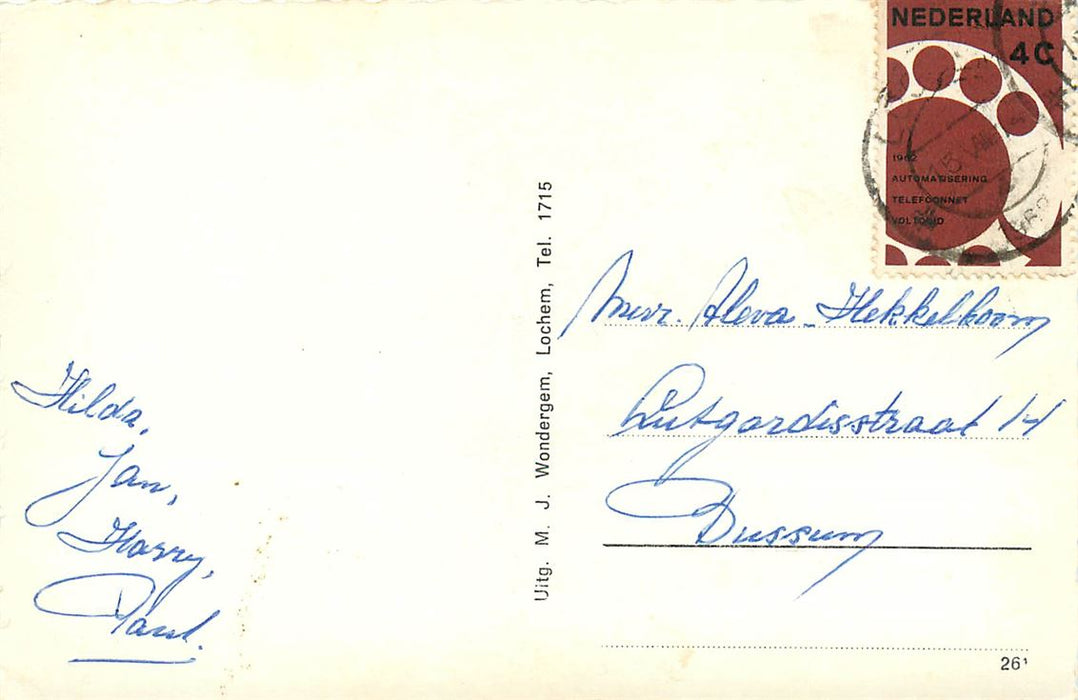 NEDERLAND
4C
1962
AUTOMATISERING
TELEFOONNET
VOLTOOID
Hilda,
Jan,
Harry,
Paul.
Uitg. M. J. Wondergem, Lochem, Tel. 1715
Mevr. Aleva - Hekkelboom
Lutgardisstraat 14
Bussum
26¹